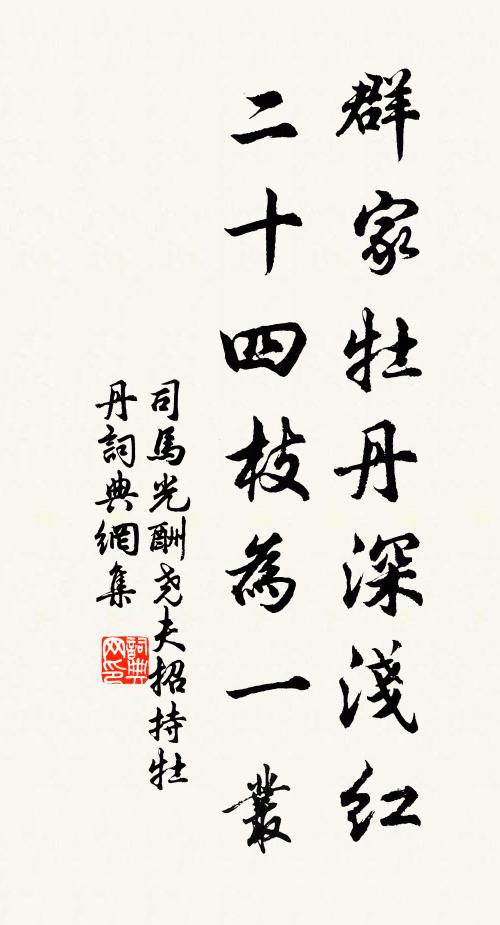 群家牡丹深淺红
二十四枝為一叢
司馬光酬尧夫招持牡
丹詞典網集
詞典
网印